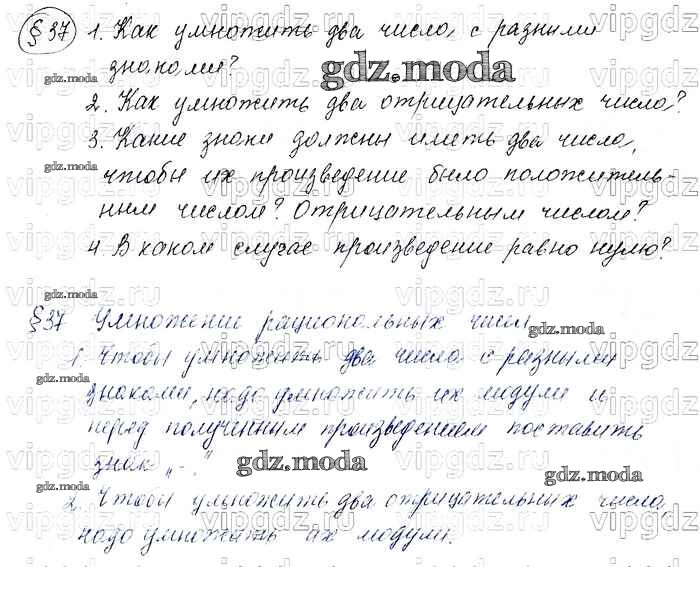 § 37 1. Как умножить два числа с разными
знаками?
gdz.moda
2. Как умножить два отрицательных числа?
3. Какие знаки должны иметь два числа,
чтобы их произведение было положитель-
ным числом? Отрицательным числом?
4. В каком случае произведение равно нулю?
§37 Умножение рациональных чисел.
1. Чтобы умножить два числа с разными
знаками, надо умножить их модули и
перед полученным произведением поставить
знак „-“
gdz.moda
gdz.moda
2. Чтобы умножить два отрицательных числа,
надо умножить их модули.